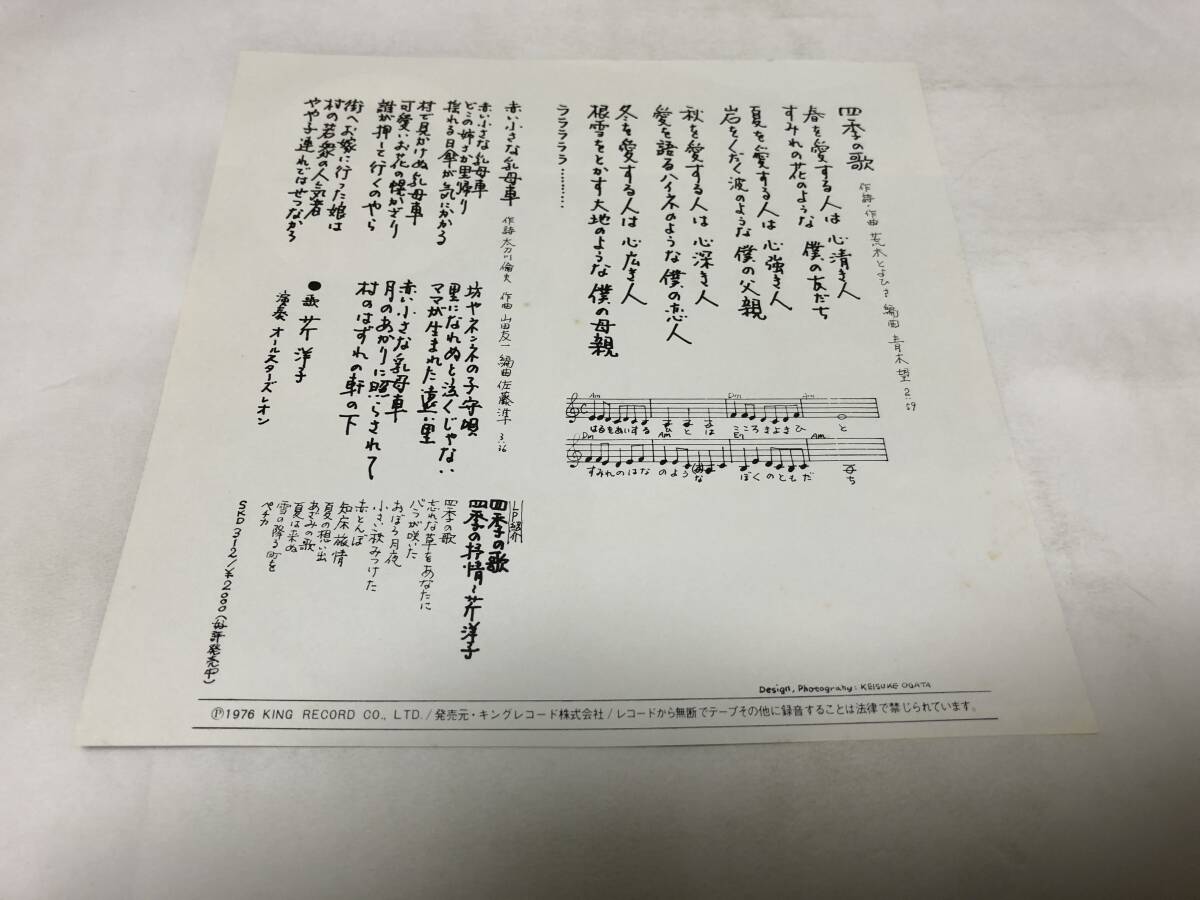 四季の歌
作詩・作曲 荒木とよひさ 編曲 青木望 2:59
春を愛する人は 心清き人
すみれの花のような 僕の友だち
夏を愛する人は 心強き人
岩をくだく波のような 僕の父親
秋を愛する人は 心深き人
愛を語るハイネのような 僕の恋人
冬を愛する人は 心広き人
根雪をとかす大地のような 僕の母親
ラララララ…………
Am Dm Am
はるをあいする ひとは こころきよきひと
Dm Am E7 Am
すみれのはな のような ぼくのともだち
赤い小さな乳母車
作詩 太刀川倫夫 作曲 山田友一 編曲 佐藤準 3:36
赤い小さな乳母車
どこの姉さか里帰り
揺れる日傘が気にかかる
村で見かけぬ乳母車
可愛いお花の幌かざり
誰が押して行くのやら
街へお嫁に行った娘は
村の若衆の人気者
やや子連れではせつなかろ
坊やネンネの子守唄
里になれぬと泣くじゃない
ママが生まれた遠い里
赤い小さな乳母車
月のあかりに照らされて
村のはずれの軒の下
●歌 芹洋子
演奏 オールスターズレオン
LP紹介
四季の歌
四季の抒情〜芹洋子
四季の歌
忘れな草をあなたに
バラが咲いた
おぼろ月夜
小さい秋みつけた
赤とんぼ
知床旅情
夏の想い出
あざみの歌
夏は来ぬ
雪の降る町を
ペチカ
SKD 312/¥2000(好評発売中)
Design, Photograhy: KEISUKE OGATA
Ⓟ1976 KING RECORD CO., LTD./発売元・キングレコード株式会社/レコードから無断でテープその他に録音することは法律で禁じられています。